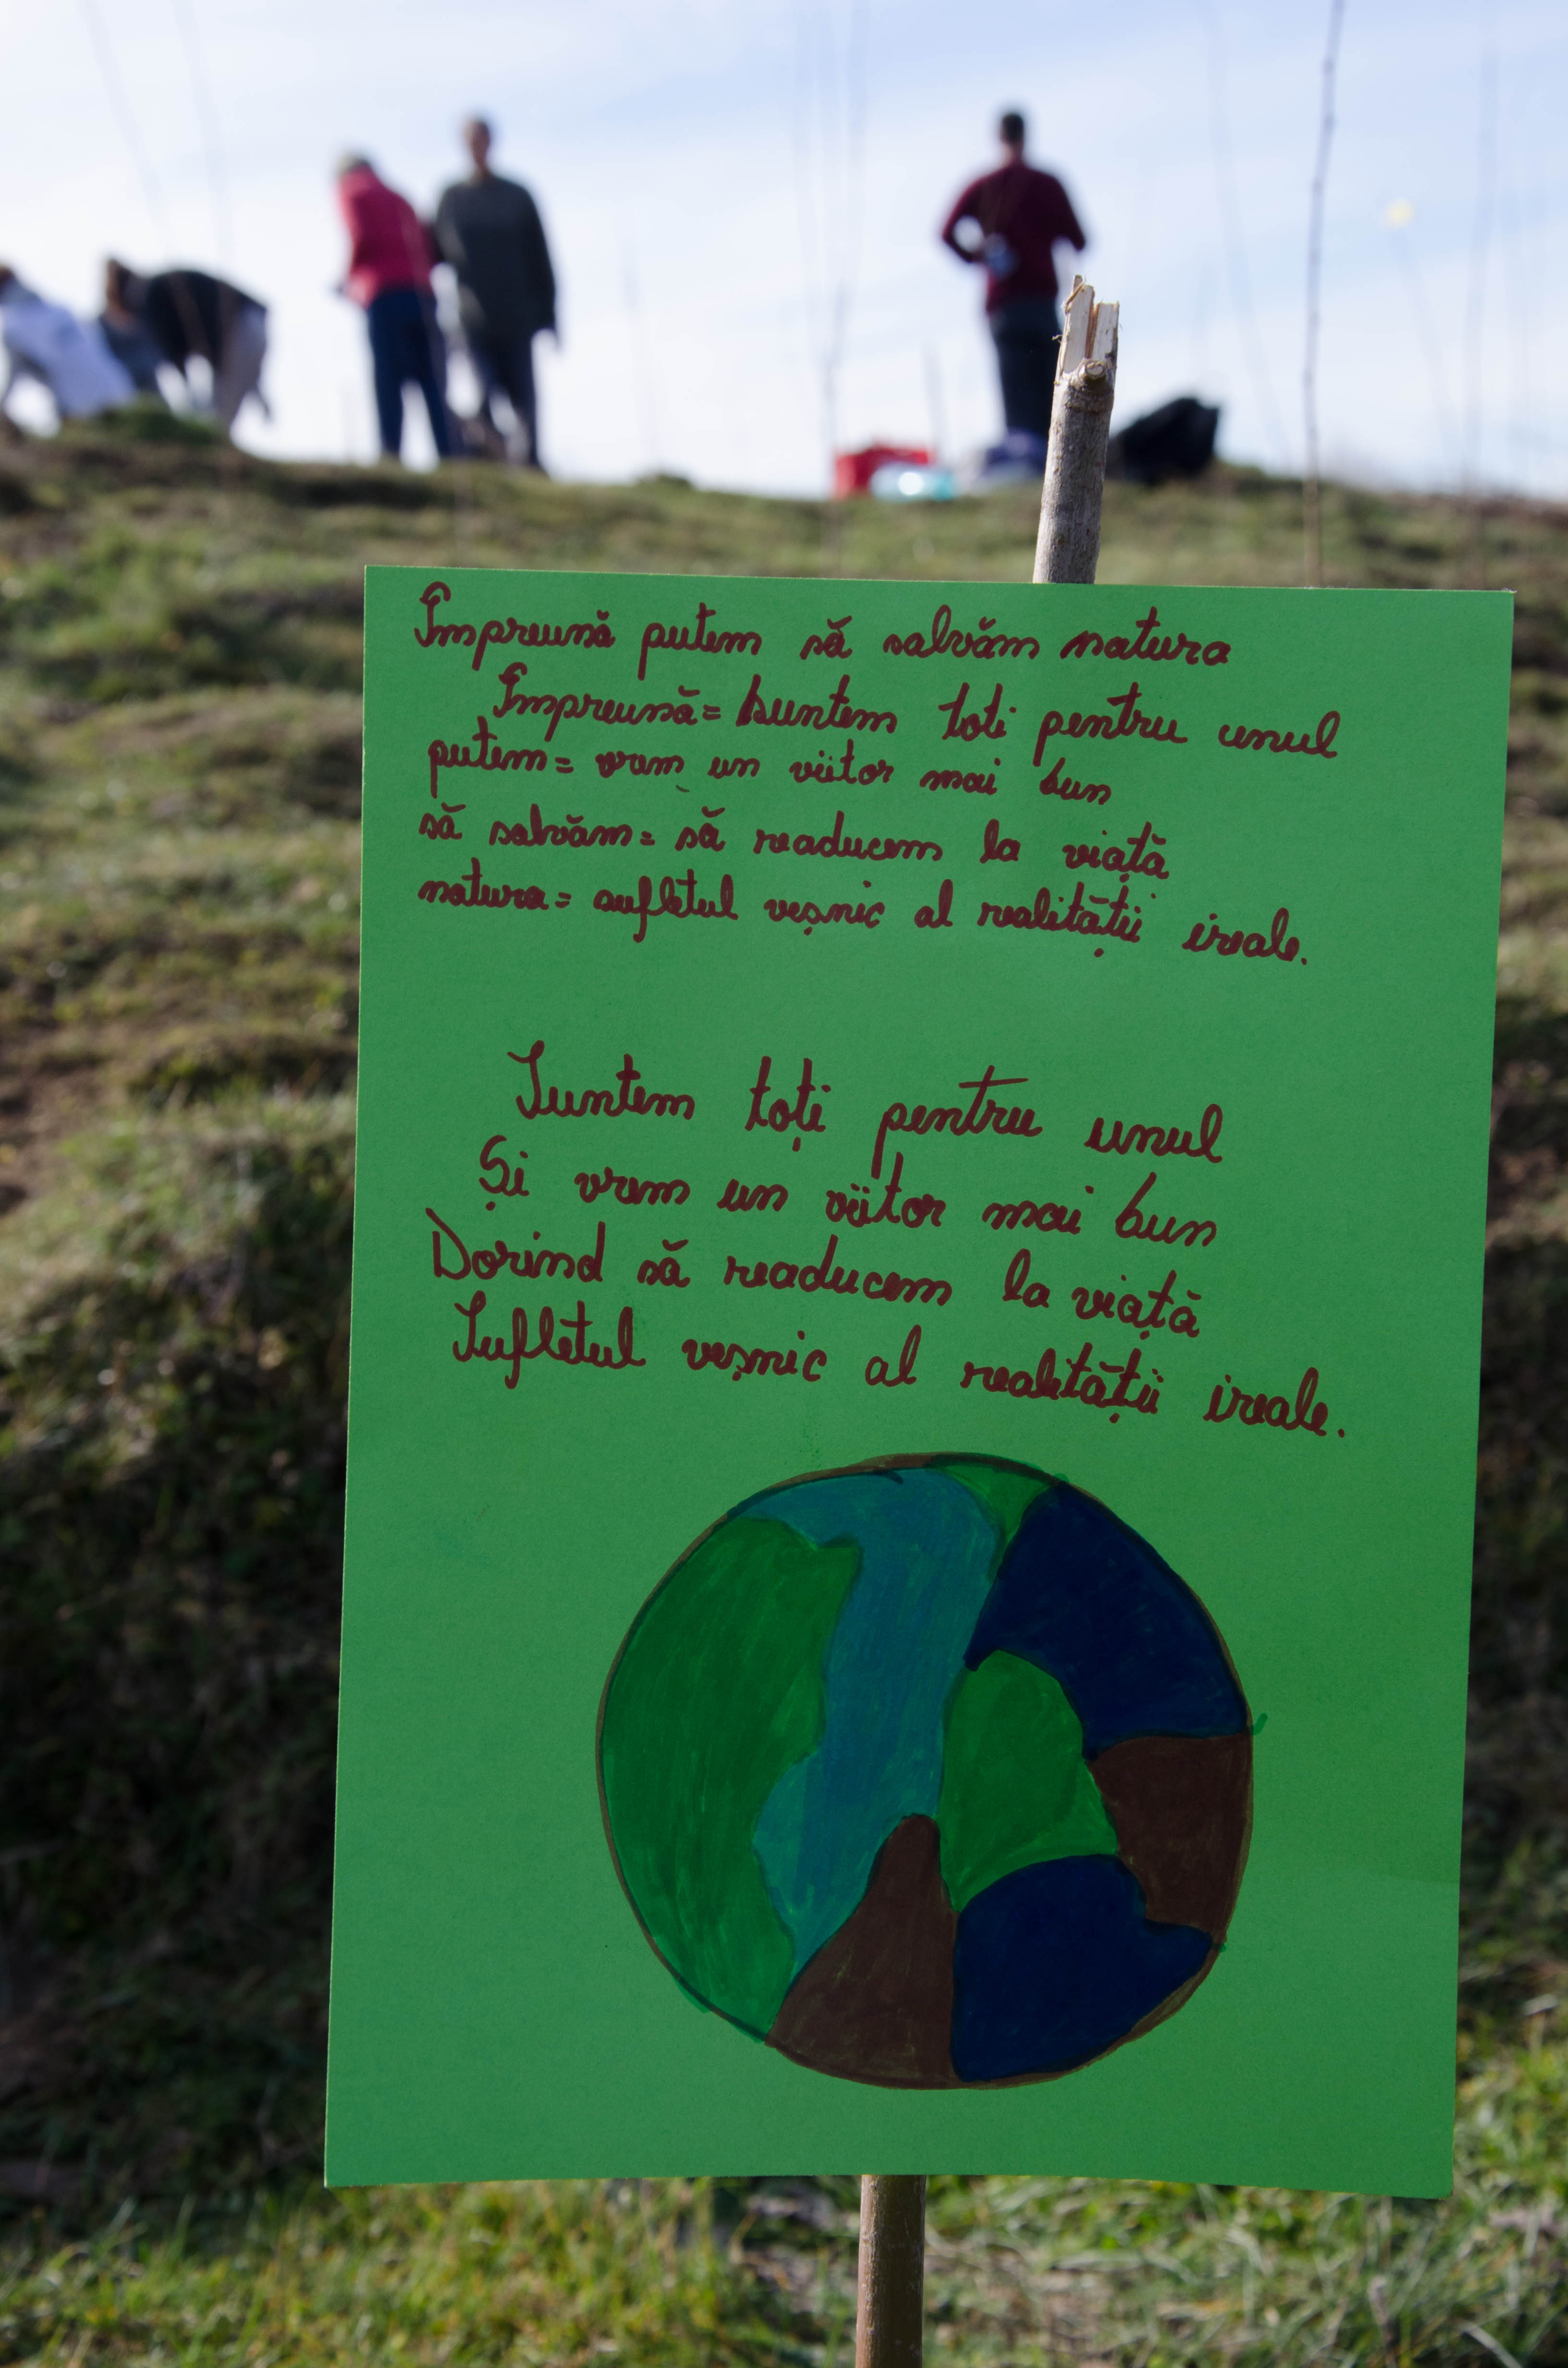 Împreună putem să salvăm natura
Împreună= suntem toti pentru unul
putem= vrem un viitor mai bun
să salvăm= să readucem la viață
natura= sufletul veșnic al realității ireale.
Suntem toți pentru unul
Și vrem un viitor mai bun
Dorind să readucem la viață
Sufletul veșnic al realității ireale.